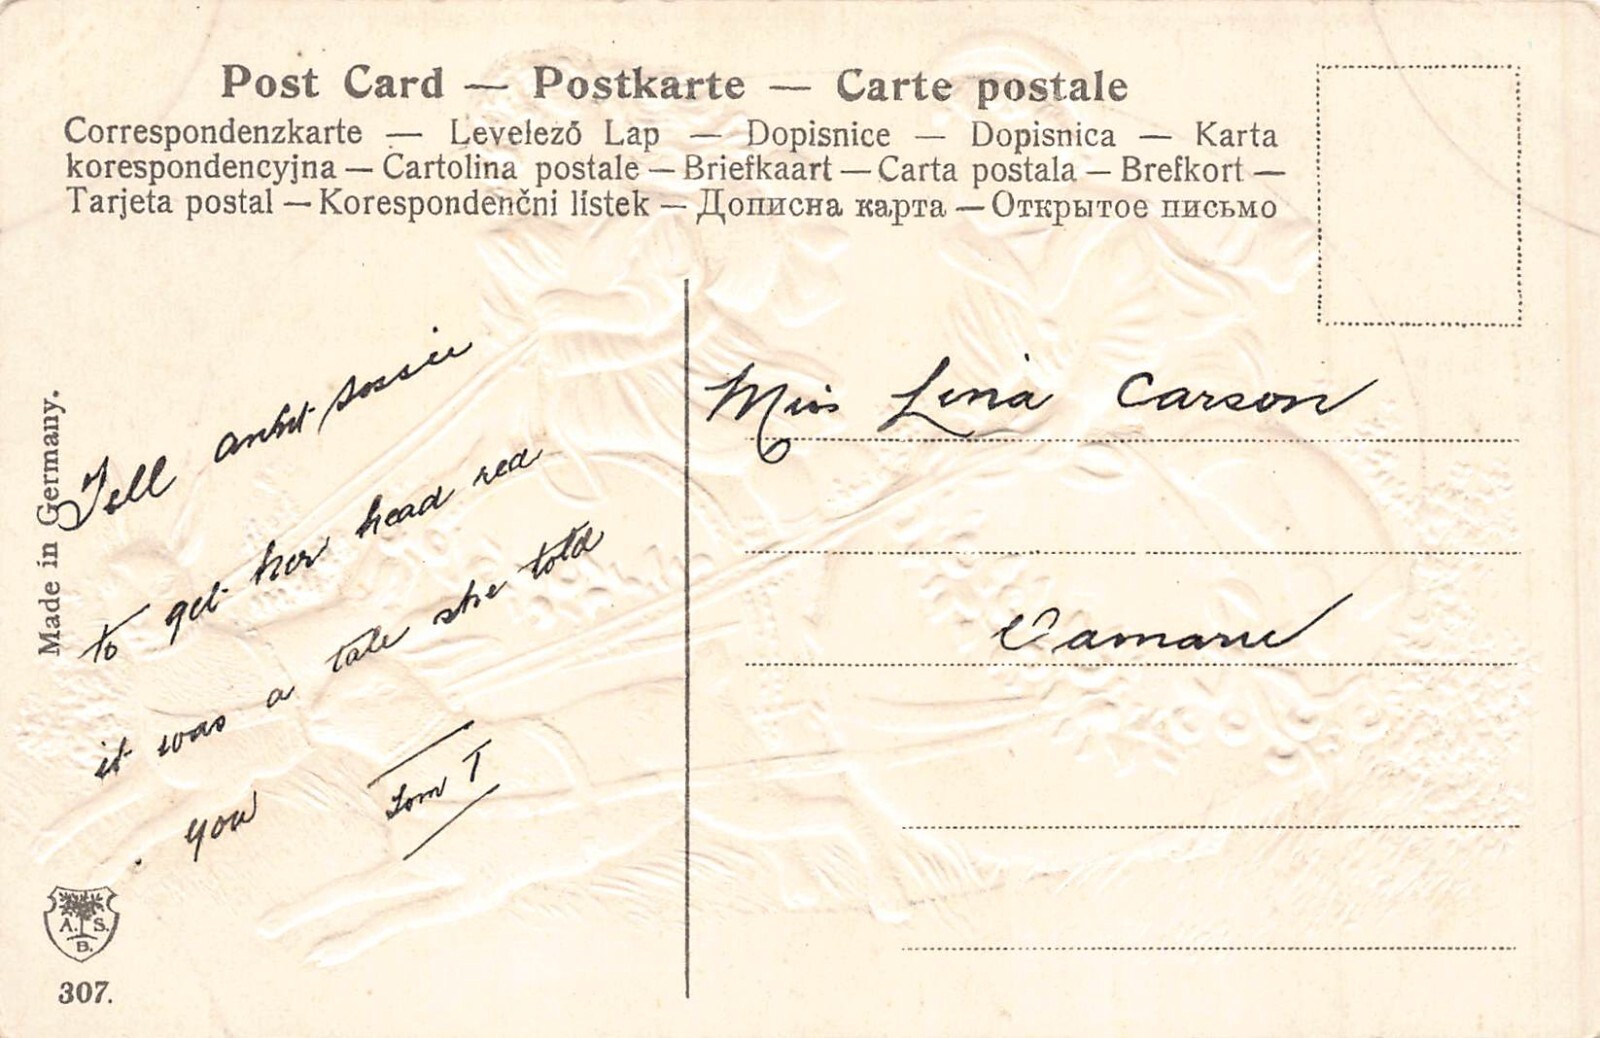 Post Card — Postkarte — Carte postale
Correspondenzkarte — Levelező Lap — Dopisnice — Dopisnica — Karta
korespondencyjna — Cartolina postale — Briefkaart — Carta postala — Brefkort —
Tarjeta postal — Korespondenčni listek — Дописна карта — Открытое письмо
Made in Germany.
Tell
to get her head red
it was a tale she told
you
Tom T
Miss Lina Carson
A. S.
B.
307.